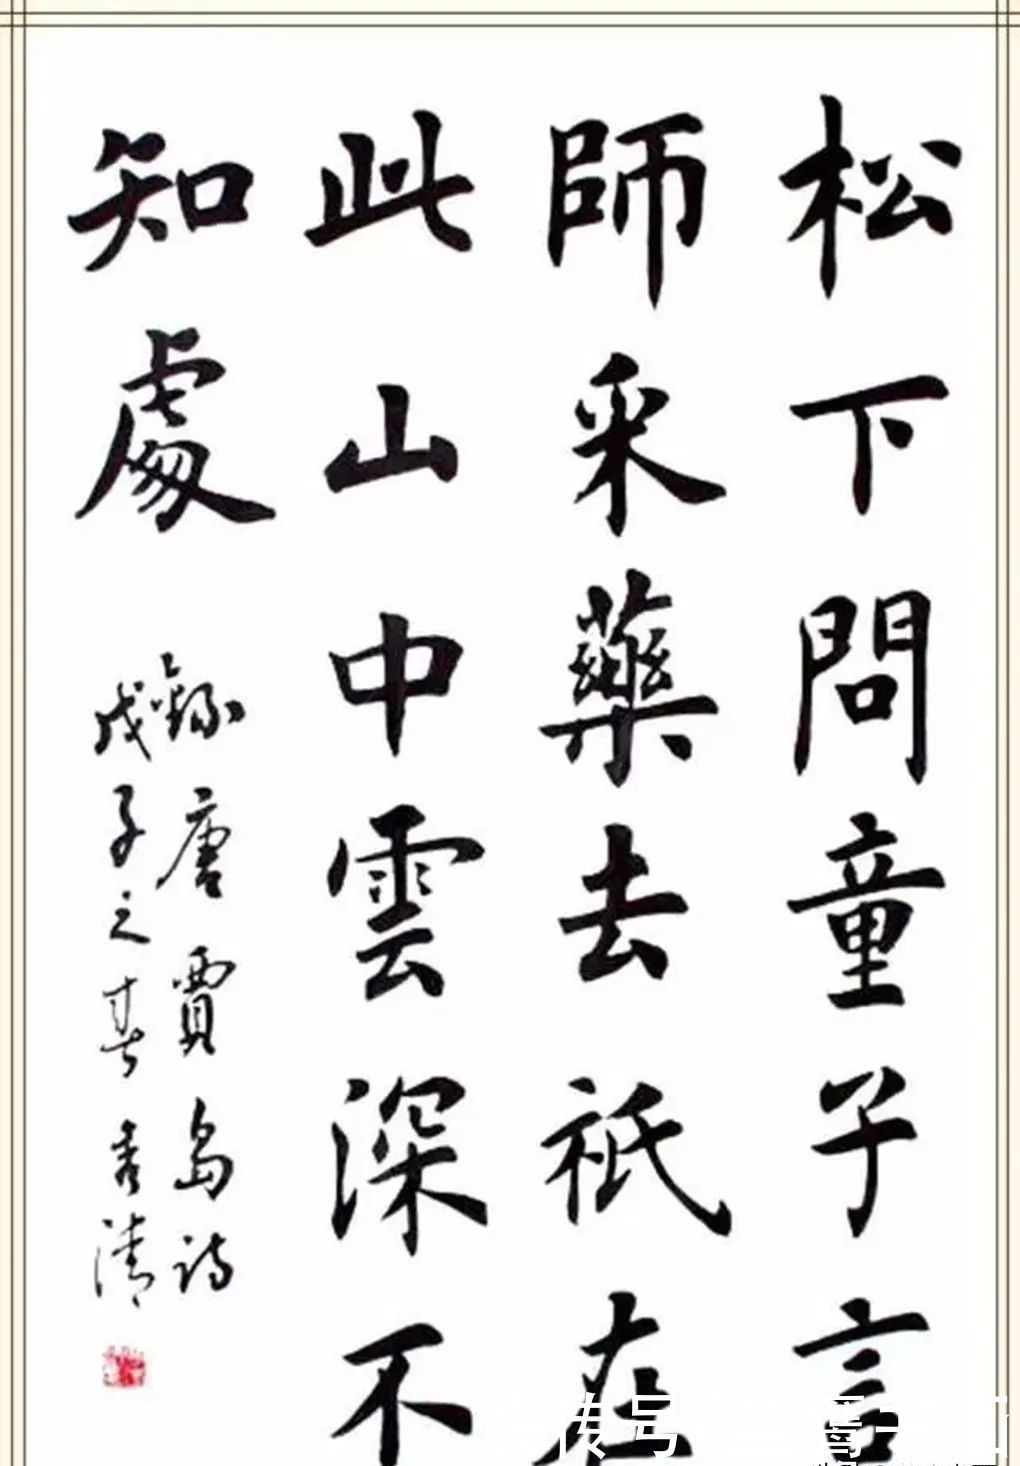 松下問童子言
師采藥去祇在
此山中雲深不
知處
錄唐賈島詩
戊子之春秀清